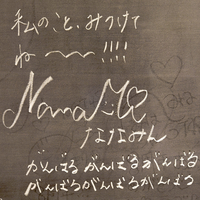 私のこと、みつけて
ね〜〜!!!!
NanaMi♡
ななみん
がんばる がんばるがんばる
がんばろがんばろがんばろ